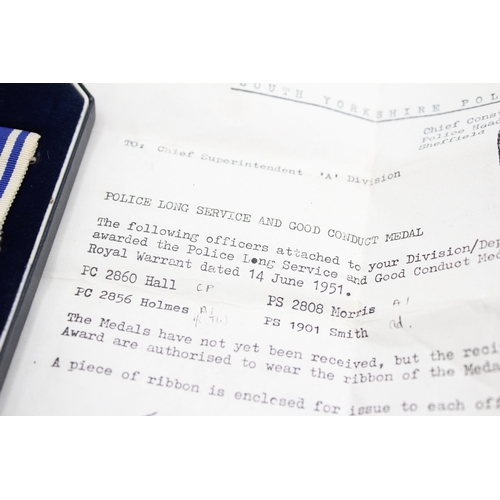 SOUTH YORKSHIRE POL
Chief Cons
Police Head
Sheffield
TO: Chief Superintendent 'A' Division
POLICE LONG SERVICE AND GOOD CONDUCT MEDAL
The following officers attached to your Division/Dep
awarded the Police Long Service and Good Conduct Med
Royal Warrant dated 14 June 1951.
PC 2860 Hall PS 2808 Morris
PC 2856 Holmes PS 1901 Smith
The Medals have not yet been received, but the reci
Award are authorised to wear the ribbon of the Meda
A piece of ribbon is enclosed for issue to each off